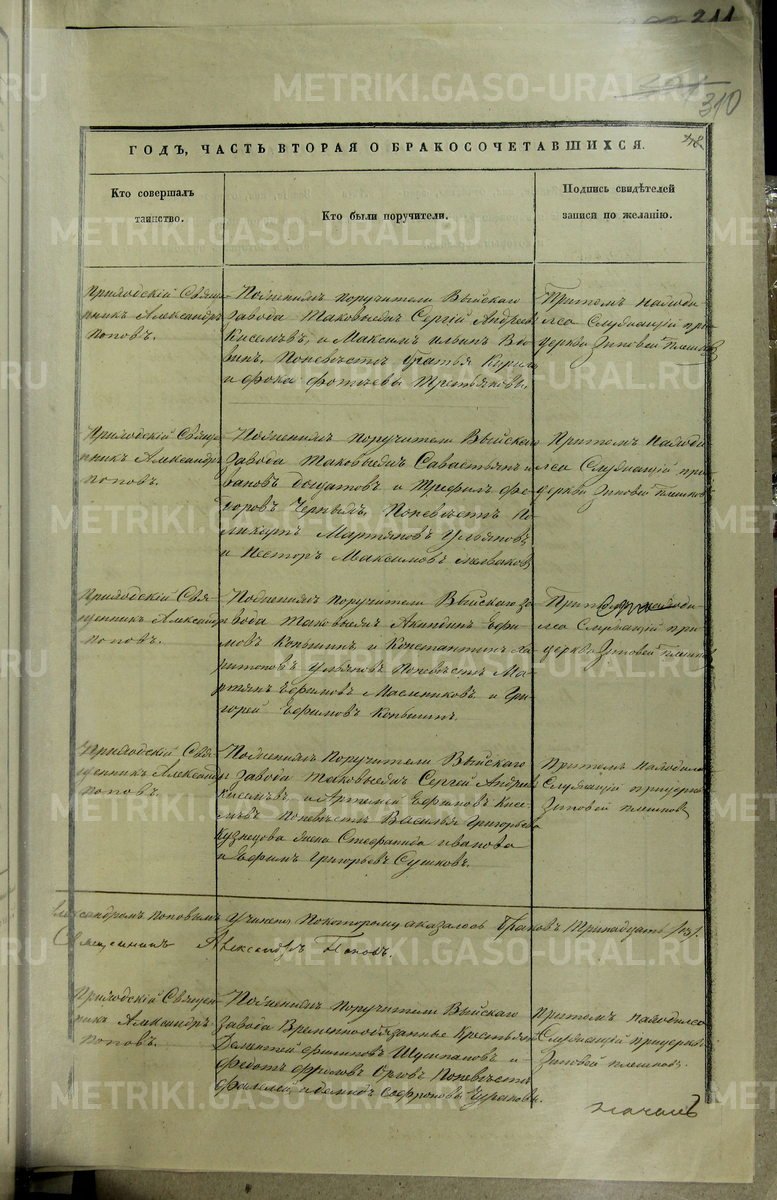 211
310
ГОДЪ, ЧАСТЬ ВТОРАЯ О БРАКОСОЧЕТАВШИХСЯ.
Кто совершалъ
таинство.
Кто были поручители.
Подпись свидѣтелей
записи по желанію.
Приходскій Свящe-
нникъ Александръ
Поповъ.
Поженихѣ поручители Выйскаго
Завода Таковыежъ Сергій Андреевъ
Киселевъ, и Максимъ Ильинъ
Поневѣстѣ Братья Курилъ
и Фока Фотеевы Третьяковы.
Притомъ находи-
лся Служащій при
церкви Зиновей Плешковъ
Приходскій Свяще-
нникъ Александръ
Поповъ.
Поженихѣ поручители Выйскаго
Завода Таковыежъ Савастьянъ и
вановъ Богатовъ и Трефилъ Фе-
доровъ Черныхъ Поневѣстѣ По-
ликарпъ Мартяновъ Ульяновъ
и Несторъ Максимовъ
Притомъ Находи
лся Служащій при
церкви Зиновей Плешковъ
Приходскій Свя-
щенникъ Александръ
Поповъ.
Поженихѣ поручители Выйскаго за
вода Таковыежъ Акинфій Ефи-
мовъ Копышинъ и Константинъ Ха-
ритоновъ Ульяновъ Поневѣстѣ Ма-
ртянъ Ефимовъ Масленниковъ и Гри-
горей Ефимовъ Копышинъ.
Притомъ находи-
лся Служащій при-
церкви Зиновей Плешковъ
Приходскій Свя-
щенникъ Александръ
Поповъ.
Поженихѣ Поручители Выйскаго
Завода Таковыежъ Сергей Андреевъ
Киселевъ и Артемей Ефимовъ Кисе-
левъ Поневѣстѣ Василья Григорьева
Кузнецова жена Стефанида Иванова
и Ефимъ Григорьевъ Сушковъ.
Притомъ Находился
Служащій прицеркви
Зиновей Плешковъ
Александромъ Поповымъ Учинено Покоторому оказалось Браковъ Тринадцать /13/.
Священникъ Александръ Поповъ.
Приходскій Священ
никъ Александръ
Поповъ.
Поженихѣ Поручители Выйскаго
Завода Временнообязанные Крестьяне
Филиповъ и
Федотъ Фроловъ Орловъ Поневѣстѣ
и Демидъ Софроновы
Притомъ находился
Служащій прицеркви
Зиновей Плешковъ.
METRIKI.GASO-URAL.RU